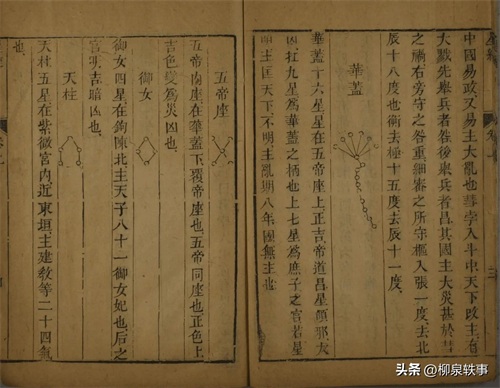 中國易政又易主大亂也彗孛入斗中天下改主有
大戮先舉兵者咎後舉兵者昌其國主大災甚於彗
之禍右旁守之咎重細審之所守樞入張一度去北
辰十八度也衡去極十五度去辰十一度
華蓋
華蓋十六星星在五帝座上正吉帝道昌星傾邪大
凶扛九星為華蓋之柄也上七星為庶子之官若星
明主匡天下不明主亂期八年國無主也
五帝座
五帝內座在華蓋下覆帝座也五帝同座也正色上
吉色變為災凶也
御女
御女四星在鉤陳北主天子八十一御女妃也后之
官明吉暗凶也
天柱
天柱五星在紫微宮內近東垣主建教等二十四氣
也
头条 @柳泉轶事